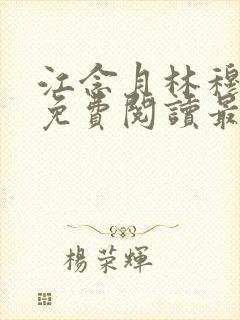 江念月林穆
免費閱讀最
楊榮輝